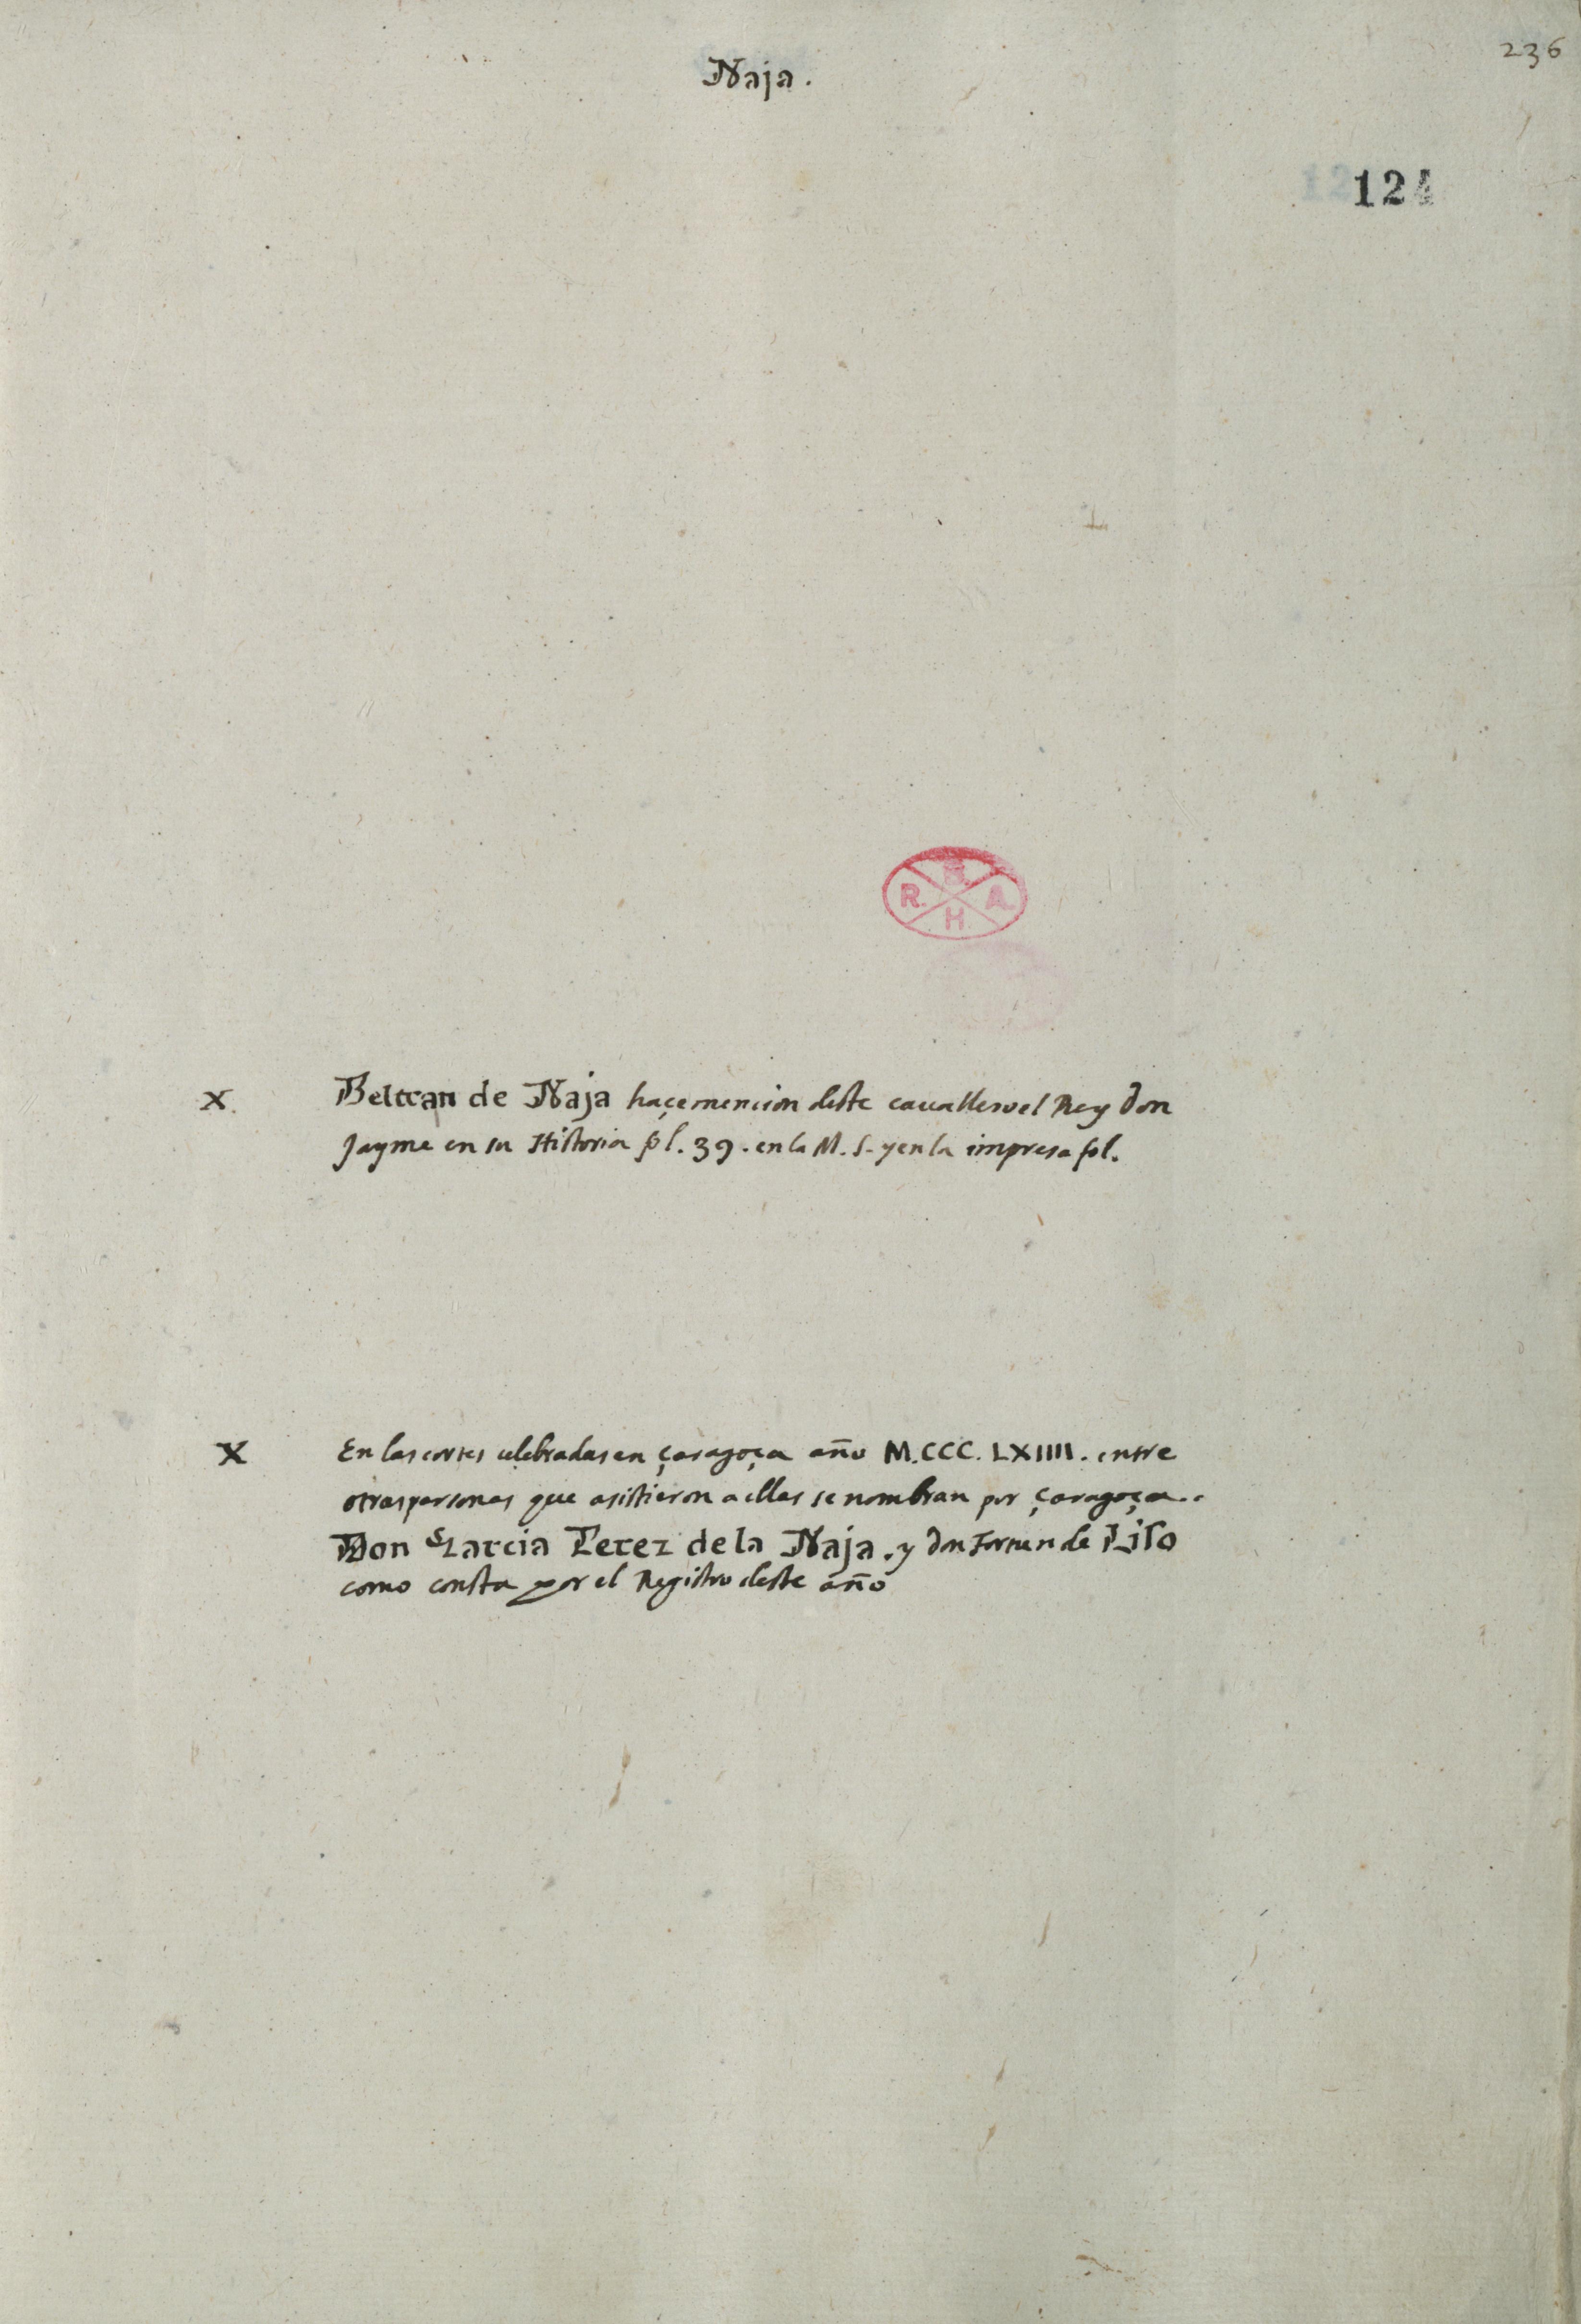 236
Naja.
124
B.
R. A.
H
x. Beltran de Naja haçe mencion deste cauallero el Rey don
Jayme en su Historia fol. 39. en la M. S. y en la impresa fol.
X En las cortes celebradas en çaragoça año M.CCC. LXIIII. entre
otras personas que asistieron a ellas se nombran por çaragoça..
Don Garcia Perez de la Naja. y don Fortun de Liso
como consta por el Registro deste año